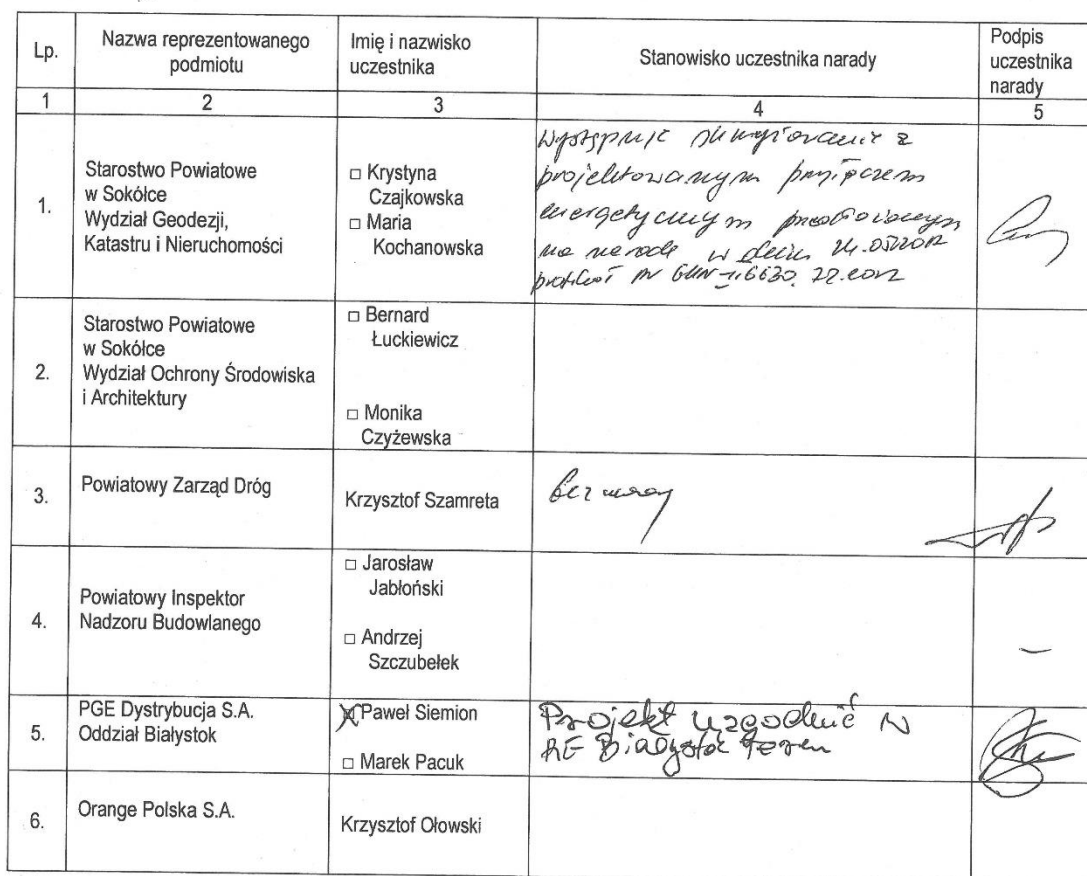 Lp.
Nazwa reprezentowanego
podmiotu
Imię i nazwisko
uczestnika
Stanowisko uczestnika narady
Podpis
uczestnika
narady
1
2
3
4
5
1.
Starostwo Powiatowe
w Sokółce
Wydział Geodezji,
Katastru i Nieruchomości
□ Krystyna
Czajkowska
□ Maria
Kochanowska
Występuje skrzyżowanie z
projektowanym przyłączem
energetycznym
na naradę w dniu
protokół nr
2.
Starostwo Powiatowe
w Sokółce
Wydział Ochrony Środowiska
i Architektury
□ Bernard
Łuckiewicz
□ Monika
Czyżewska
3.
Powiatowy Zarząd Dróg
Krzysztof Szamreta
bez uwag
4.
Powiatowy Inspektor
Nadzoru Budowlanego
□ Jarosław
Jabłoński
□ Andrzej
Szczubełek
5.
PGE Dystrybucja S.A.
Oddział Białystok
☒ Paweł Siemion
□ Marek Pacuk
Projekt uzgodnić w
RE Białystok Teren
6.
Orange Polska S.A.
Krzysztof Ołowski